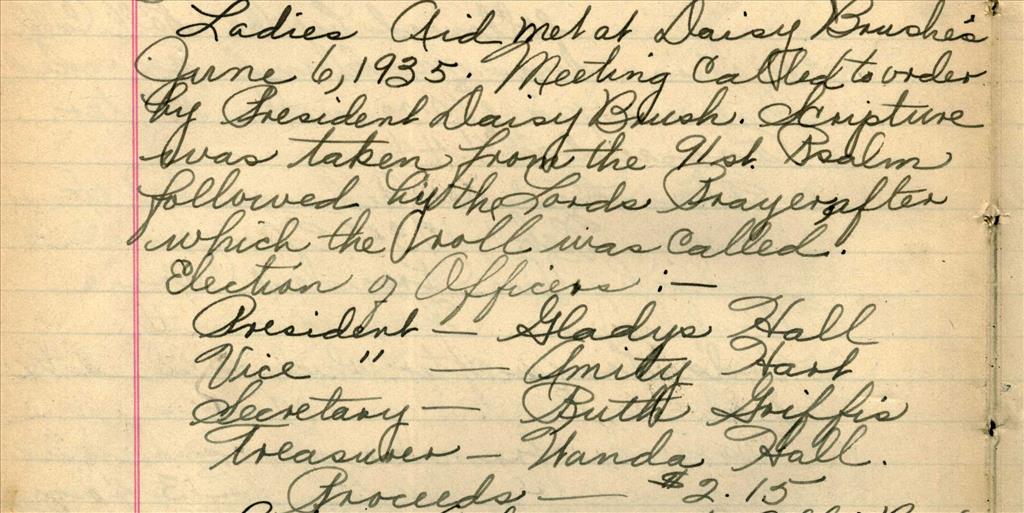 Ladies Aid met at Daisy Brushe's
June 6, 1935. Meeting called to order
by President Daisy Brush. Scripture
was taken from the 91st. Psalm
followed by the Lords Prayer after
which the roll was called.
Election of Officers :-
President — Gladys Hall
Vice " — Amity Hart
Secretary — Ruth Griffis
Treasurer — Wanda Hall.
Proceeds — $2.15